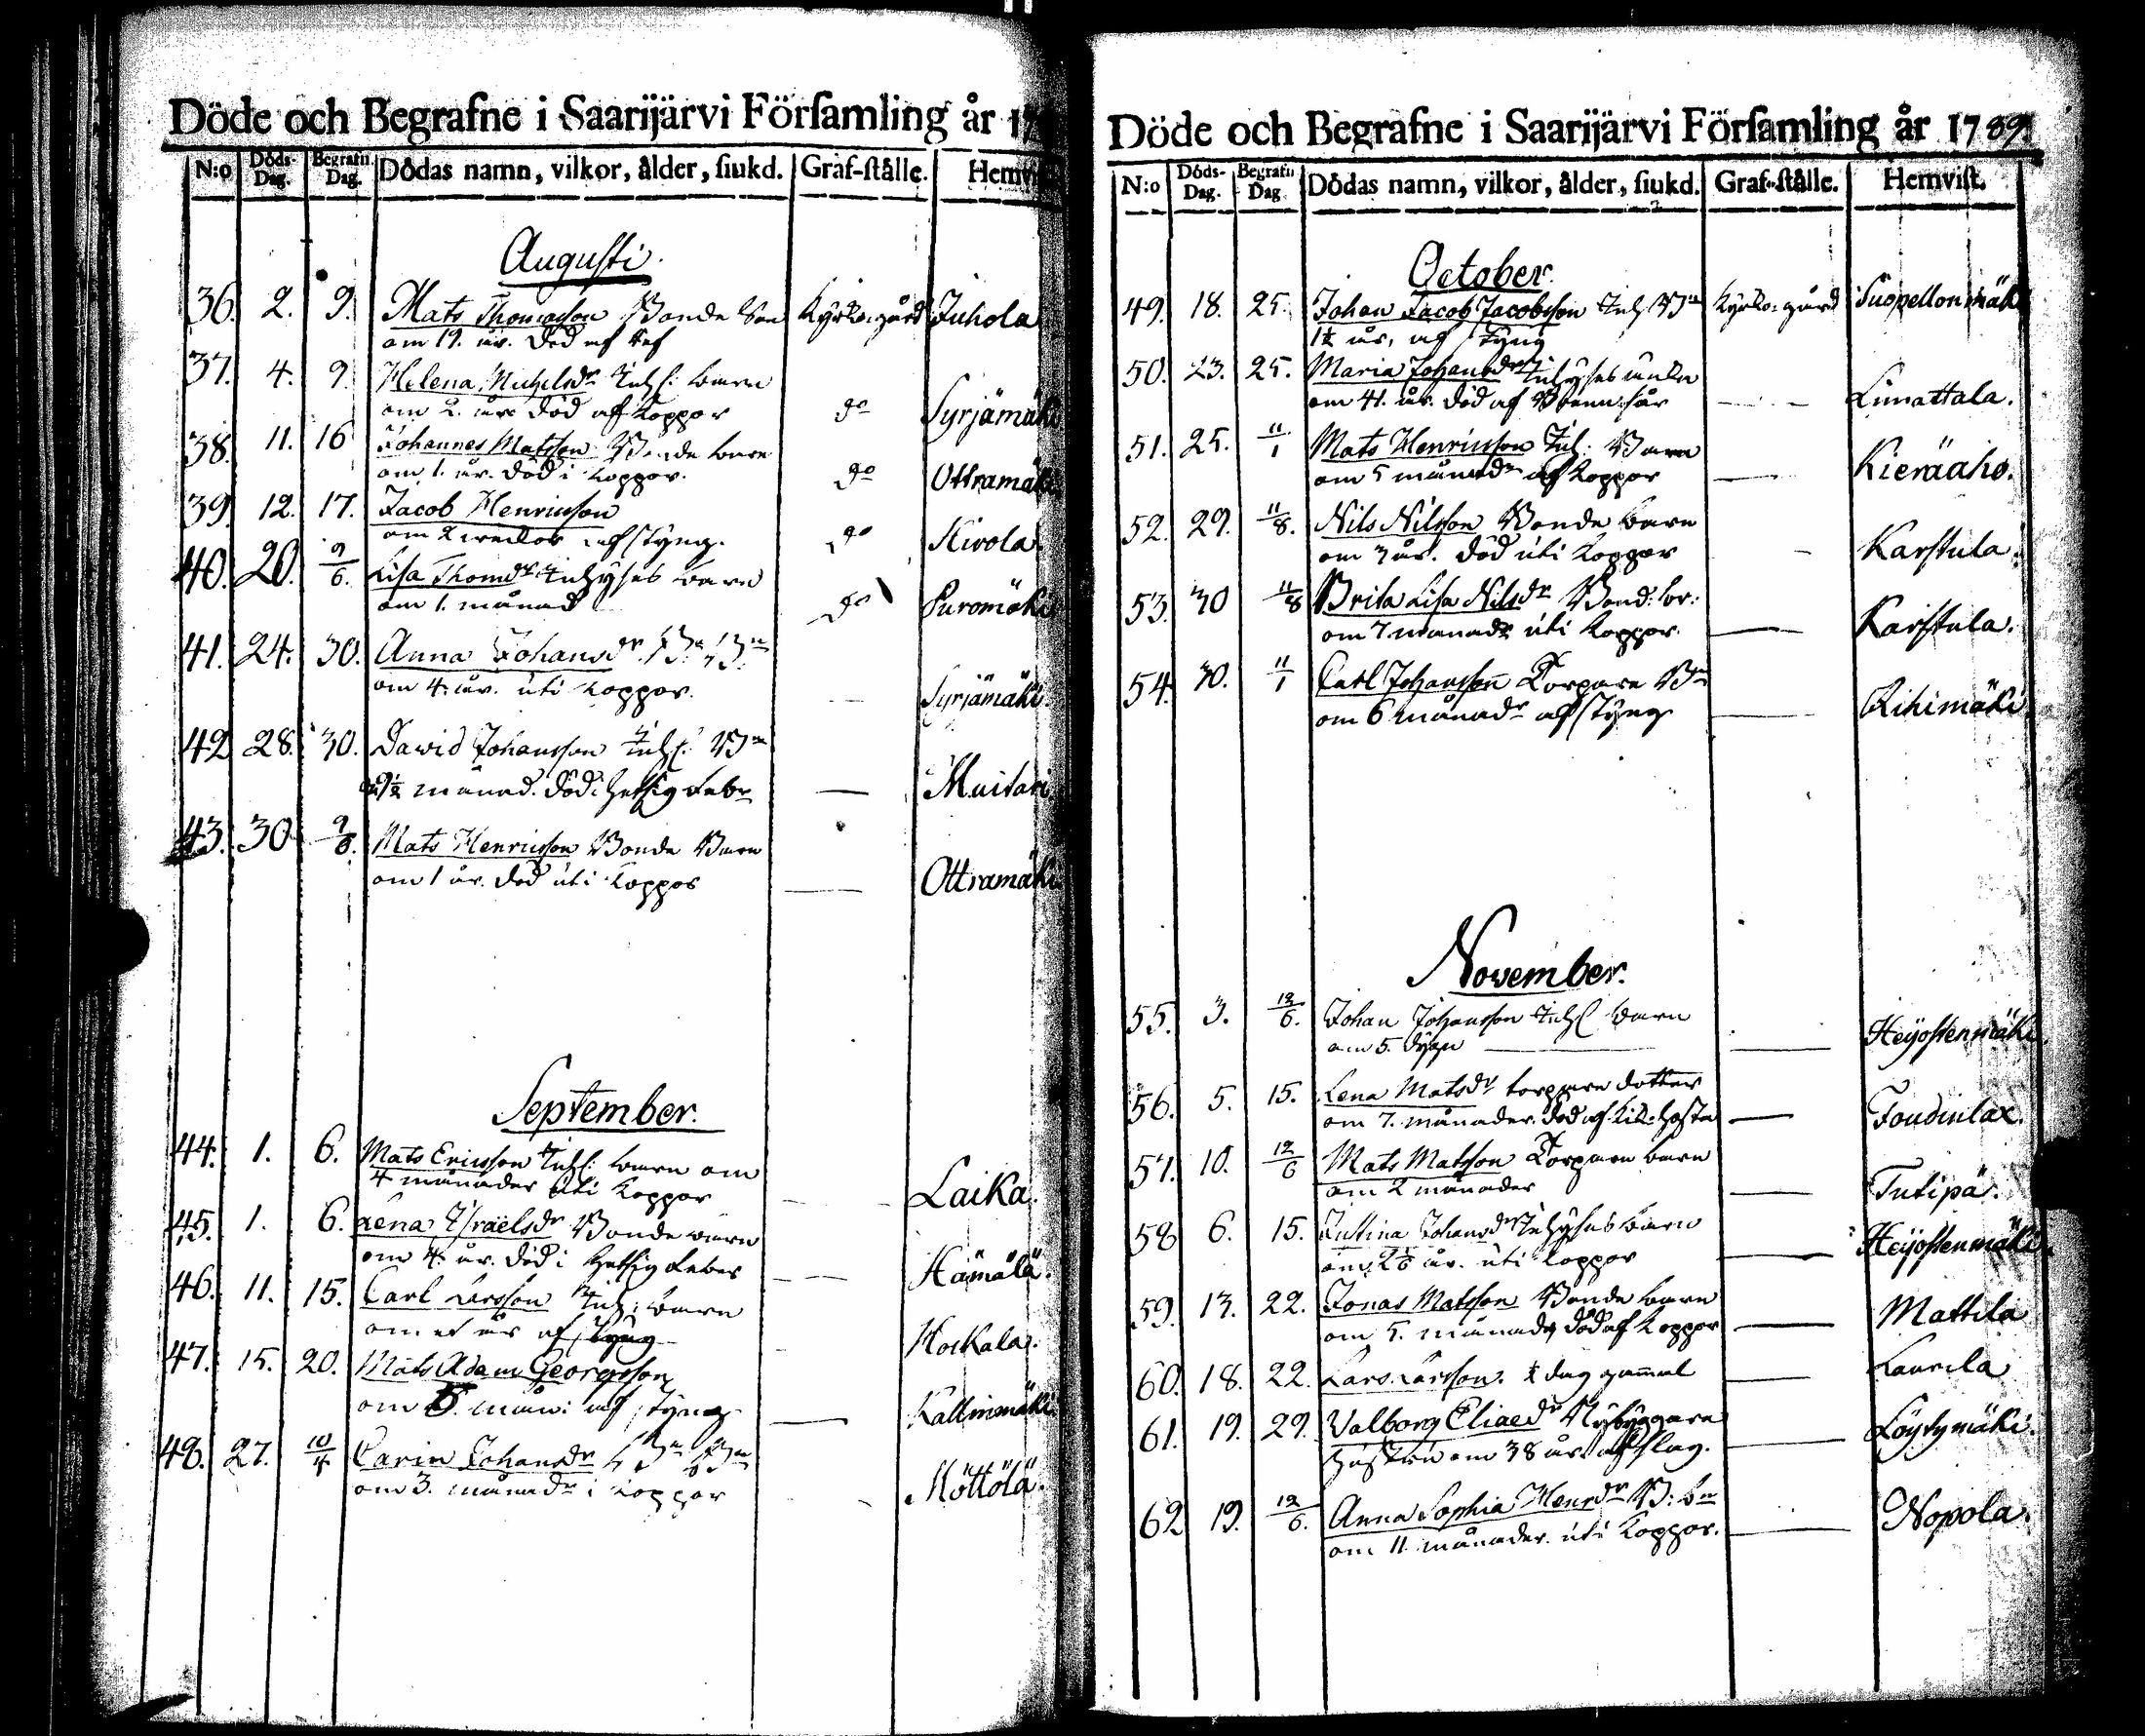 Döde och Begrafne i Saarijärvi Förſamling år 17
N:o Döds-Dag. Begrafn. Dag. Dödas namn, vilkor, ålder, ſiukd. Graf-ſtälle. Hemv
Auguſti.
36. 2. 9. Mats Thomasson Bonde Son Kyrko-gård Juhola
om 19. år. död af
37. 4. 9. Helena Michelsdr Inhs: barn
om 2. år död af Koppor do Syrjämäki
38. 11. 16 Johannes Matsson Bonde barn
om 1. år. död i Koppor. do Ottramäki
39. 12. 17. Jacob Henricsson
om 2 weckor af styng. do Kivola
40. 20. 9/6. Lisa Thomdr Inhyses barn
om 1. månad do Puromäki
41. 24. 30. Anna Johansdr
om 4. år. uti Koppor. Syrjämäki
42 28. 30. David Johansson Inhs: Bn
månad. död i hetsig feber Muitari
43. 30 9/8. Mats Henricsson Bonde Barn
om 1 år. död uti Koppor Ottramäki
September.
44. 1. 6. Mats Ericsson Inhs: barn om
4 månader uti Koppor Laika.
45. 1. 6. Lena Israëlsdr Bonde barn
om 4. år. död i hetsig feber Hämälä.
46. 11. 15. Carl Larsson Inh: barn
om et år af styng Hoikala.
47. 15. 20. Mats Adam Georgsson
om 5. mån: af styng Kallinmäki
48. 27. 10/4 Carin Johansdr
om 3. månadr i Koppor Möttölä.
Döde och Begrafne i Saarijärvi Förſamling år 1789
N:o Döds-Dag. Begrafn Dag Dödas namn, vilkor, ålder, ſiukd. Graf-ſtälle. Hemviſt.
October.
49. 18. 25. Johan Jacob Jacobsson Inh Bn Kyrko-gård Suopellonmäki
1½ år, af styng
50. 23. 25. Maria Johansdr Inhyses enka
om 41. år. död af Limattala.
51. 25. 11/1 Mats Henricsson Inh: Barn
om 5 månadr af Koppor Kieräaho.
52. 29. 11/8. Nils Nilsson Bonde barn
om 3 år. död uti Koppor Karstula.
53. 30 11/8 Brita Lisa Nilsdr Bond: br:
om 7 månadr uti Koppor. Karstula.
54. 30. 11/1 Carl Johansson Torpare Bn
om 6 månadr af styng Rihimäki
November.
55. 3. 12/6. Johan Johansson Inhs barn
om 5. dygn Heijostenmäki
56. 5. 15. Lena Matsdr torpare dotter
om 7. månader. död af Kik-hosta Toudinlax.
57. 10. 12/6 Mats Matsson Torpare barn
om 2 månader Tutipä.
58 6. 15. Justina Johansdr Inhyses barn
om år. uti Koppor Heijostenmäki
59. 13. 22. Jonas Matsson Bonde barn
om 5. månadr död af Koppor Mattila
60. 18. 22. Lars Larsson. ½ dag gammal Laurila
61. 19. 29. Valborg Eliaedr Nybyggare
hustru om 38 år af slag. Löytymäki.
62 19. 12/6. Anna Sophia Henrdr B: bn
om 11. månader. uti Koppor. Nopola.